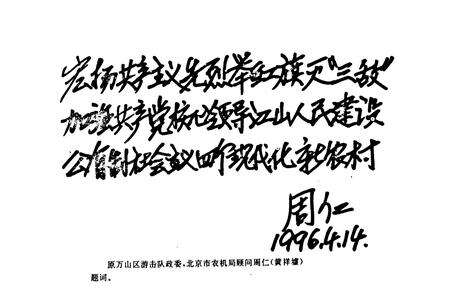 宏扬共产主义先烈举红旗灭"三敌"
加强共产党核心领导江山人民建设
公有制社会主义四个现代化新农村
周仁
1996.4.14.
原万山区游击队政委,北京市农机局顾问周仁(黄祥墉)
题词。